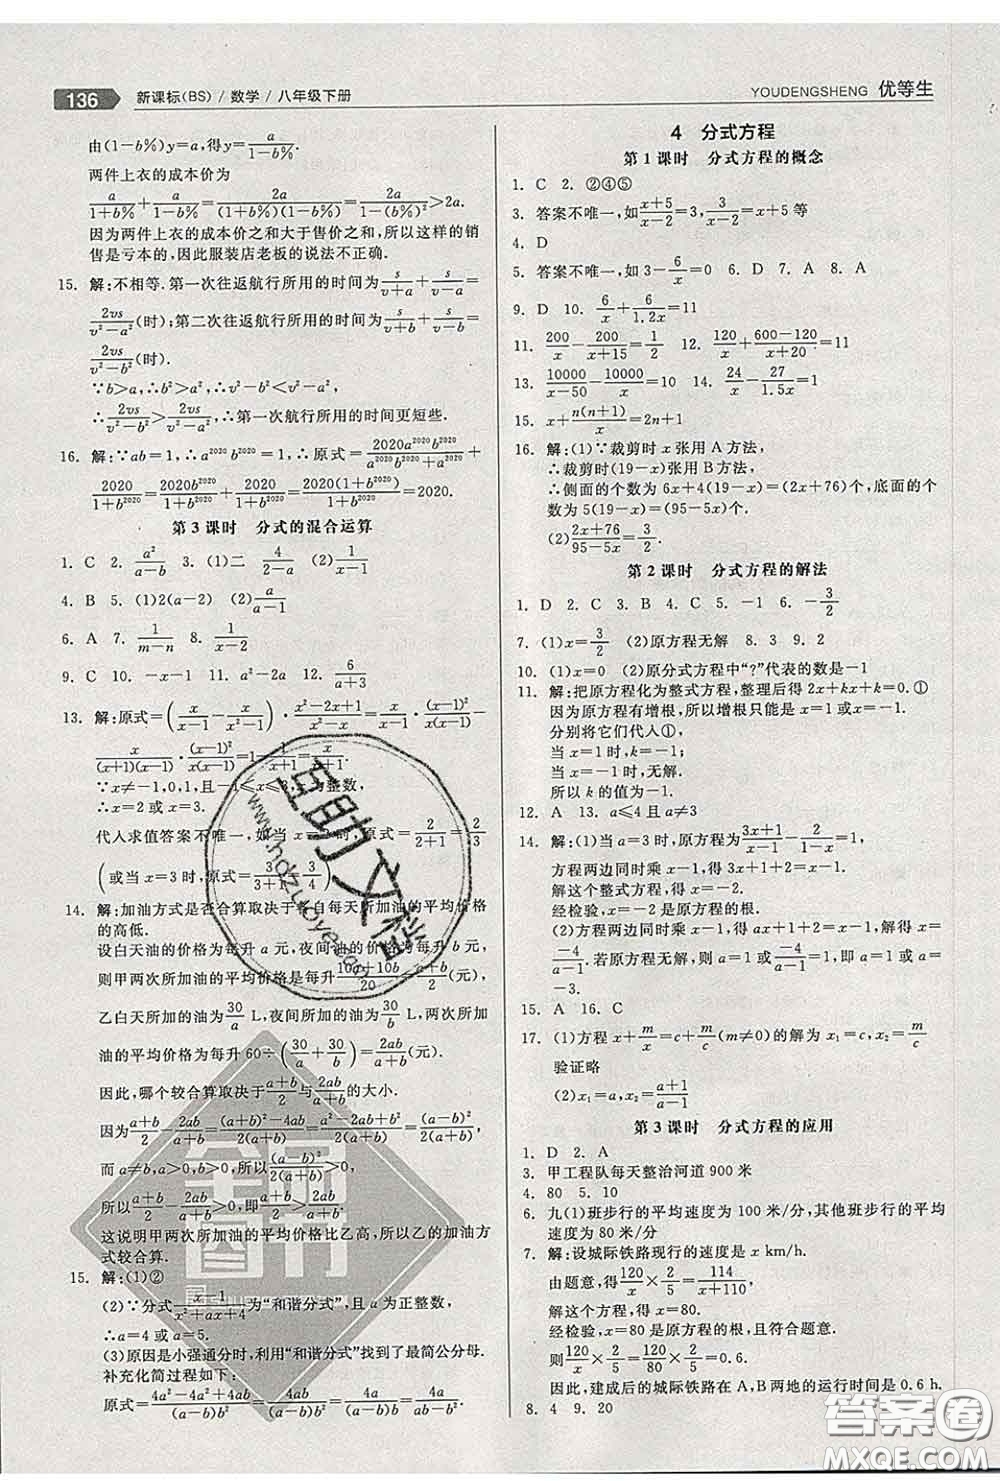 136 新课标(BS)/数学/八年级下册
YOUDENGSHENG 优等生
由(1-b%)y=a,得y=a/(1-b%).
两件上衣的成本价为
a/(1+b%)+a/(1-b%)=2a/((1+b%)(1-b%))=2a/(1-(b%)²)>2a.
因为两件上衣的成本价之和大于售价之和,所以这样的销
售是亏本的,因此服装店老板的说法不正确.
15. 解:不相等.第一次往返航行所用的时间为s/(v+a)+s/(v-a)=
2vs/(v²-a²)(时);第二次往返航行所用的时间为s/(v+b)+s/(v-b)=
2vs/(v²-b²)(时).
∵b>a,∴b²>a²,∴v²-b²<v²-a²,
∴2vs/(v²-b²)>2vs/(v²-a²),∴第一次航行所用的时间更短些.
16. 解:∵ab=1,∴a²⁰²⁰b²⁰²⁰=1,∴原式=2020a²⁰²⁰b²⁰²⁰/(a²⁰²⁰b²⁰²⁰+a²⁰²⁰)+
2020/(1+b²⁰²⁰)=2020b²⁰²⁰/(1+b²⁰²⁰)+2020/(1+b²⁰²⁰)=2020(1+b²⁰²⁰)/(1+b²⁰²⁰)=2020.
第3课时 分式的混合运算
1. C 2. a²/(a-b) 3. (1)二 4/(a-2) (2)1/(x-1)
4. B 5. (1)2(a-2) (2)a/(a-1)
6. A 7. 1/(m-n) 8. 1/(x-2)
9. C 10. -x-1 11. a²-2a 12. 6/(a+3)
13. 解:原式=(x/(x-1)-x/(x²-1))·(x²-2x+1)/(x²-x)=x²/(x²-1)·(x-1)²/(x(x-1))=
x²/((x+1)(x-1))·(x-1)²/(x(x-1))=x/(x+1).
∵x≠-1,0,1,且-1≤x≤3,x为整数,
∴x=2或x=3.
代入求值答案不唯一,如当x=2时,原式=2/(2+1)=2/3
(或当x=3时,原式=3/(3+1)=3/4).
14. 解:加油方式是否合算取决于各自每天所加油的平均价格
的高低.
设白天油的价格为每升a元,夜间油的价格为每升b元,
则甲两次所加油的平均价格是每升(10a+10b)/20=(a+b)/2(元),
乙白天所加的油为30/a L,夜间所加的油为30/b L,所以两次所
加油的平均价格为每升60÷(30/a+30/b)=2ab/(a+b)(元).
因此,哪个较合算取决于(a+b)/2与2ab/(a+b)的大小.
因为(a+b)/2-2ab/(a+b)=((a+b)²-4ab)/(2(a+b))=(a-b)²/(2(a+b)),
而a≠b,a>0,b>0,所以(a-b)²/(2(a+b))>0,
所以(a+b)/2-2ab/(a+b)>0,所以(a+b)/2>2ab/(a+b).
这说明甲两次所加油的平均价格比乙高,所以乙的加油方
式较合算.
15. 解:(1)②
(2)∵分式(x-1)/(x²+ax+4)为“和谐分式”,且a为正整数,
∴a=4或a=5.
(3)原因是小强通分时,利用“和谐分式”找到了最简公分母.
补充化简过程如下:
原式=(4a²-4a²+4ab)/((a-b)b²)=4a/((a-b)b)=4a/(ab-b²)
4 分式方程
第1课时 分式方程的概念
1. C 2. ②④⑤
3. 答案不唯一,如(x+5)/(x-2)=3,3/(x-2)=x+5等
4. D
5. 答案不唯一,如3-6/x=0 6. D 7. A 8. A
9. D 10. 6/x+6/(1.2x)=11
11. 200/x-200/(x+15)=1/2 12. 120/x+(600-120)/(x+20)=11
13. 10000/(x-50)-10000/x=4 14. 24/x-27/(1.5x)=1
15. x+n(n+1)/x=2n+1
16. 解:(1)∵裁剪时x张用A方法,
∴裁剪时(19-x)张用B方法,
∴侧面的个数为6x+4(19-x)=(2x+76)个,底面的个
数为5(19-x)=(95-5x)个.
(2)(2x+76)/(95-5x)=3/2
第2课时 分式方程的解法
1. D 2. C 3. C 4. C 5. -1 6. -3/2
7. (1)x=3/2 (2)原方程无解 8. 3 9. 2
10. (1)x=0 (2)原分式方程中“?”代表的数是-1
11. 解:把原方程化为整式方程,整理后得2x+kx+k=0.①
因为原方程有增根,所以增根只能是x=1或x=-1.
分别将它们代入①,
当x=1时,k=-1;
当x=-1时,无解.
所以k的值为-1.
12. A 13. a≤4且a≠3
14. 解:(1)当a=3时,原方程为(3x+1)/(x-1)-2/(1-x)=1,
方程两边同时乘x-1,得3x+1+2=x-1.
解这个整式方程,得x=-2.
经检验,x=-2是原方程的根.
(2)方程两边同时乘x-1,得ax+1+2=x-1,解得x=
-4/(a-1).若原方程无解,则x=1或a-1=0,即-4/(a-1)=1或a=1,解得a=
-3.
15. A 16. C
17. (1)方程x+m/x=c+m/c(m≠0)的解为x₁=c,x₂=m/c
验证略
(2)x₁=a,x₂=(a+1)/(a-1)
第3课时 分式方程的应用
1. D 2. A
3. 甲工程队每天整治河道900米
4. 80 5. 10
6. 九(1)班步行的平均速度为100米/分,其他班步行的平均
速度为80米/分
7. 解:设城际铁路现行的速度是x km/h.
由题意,得120/x×2/5=120/(x+110),
解这个方程,得x=80.
经检验,x=80是原方程的根,且符合题意.
则120/x×2/5=120/80×2/5=0.6.
因此,建成后的城际铁路在A,B两地的运行时间是0.6 h.
8. 4 9. 20
互助文档
www.hdzuoye.com
答案圈
MXQE.COM